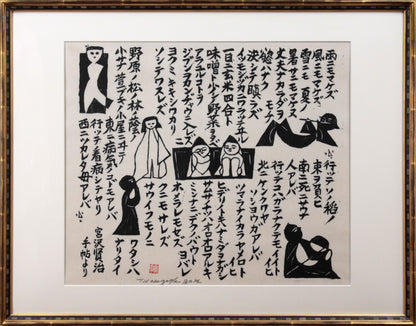 雨ニモマケズ
風ニモマケズ
雪ニモ 夏ノ
暑サニモマケヌ
丈夫ナカラダヲ
モチ
慾ハナク
決シテ瞋ラズ
イツモシヅカニワラッテヰル
一日ニ玄米四合ト
味噌ト少シノ野菜ヲタベ
アラユルコトヲ
ジブンヲカンヂャウニ入レズニ
ヨクミキキシワカリ
ソシテワスレズ
野原ノ松ノ林ノ蔭ノ
小サナ萱ブキノ小屋ニヰテ
東ニ病気ノコドモアレバ
行ッテ看病シテヤリ
西ニツカレタ母アレバ
行ッテソノ稲ノ
束ヲ負ヒ
南ニ死ニサウナ
人アレバ
行ッテコハガラナクテモイヽト
イヒ
北ニケンクヮヤ
ソショウガアレバ
ツマラナイカラヤメロト
イヒ
ヒデリノトキハナミダヲナガシ
サムサノナツハオロオロアルキ
ミンナニデクノボート
ヨバレ
ホメラレモセズ
クニモサレズ
サウイフモノニ
ワタシハ
ナリタイ
宮沢賢治
手帖より